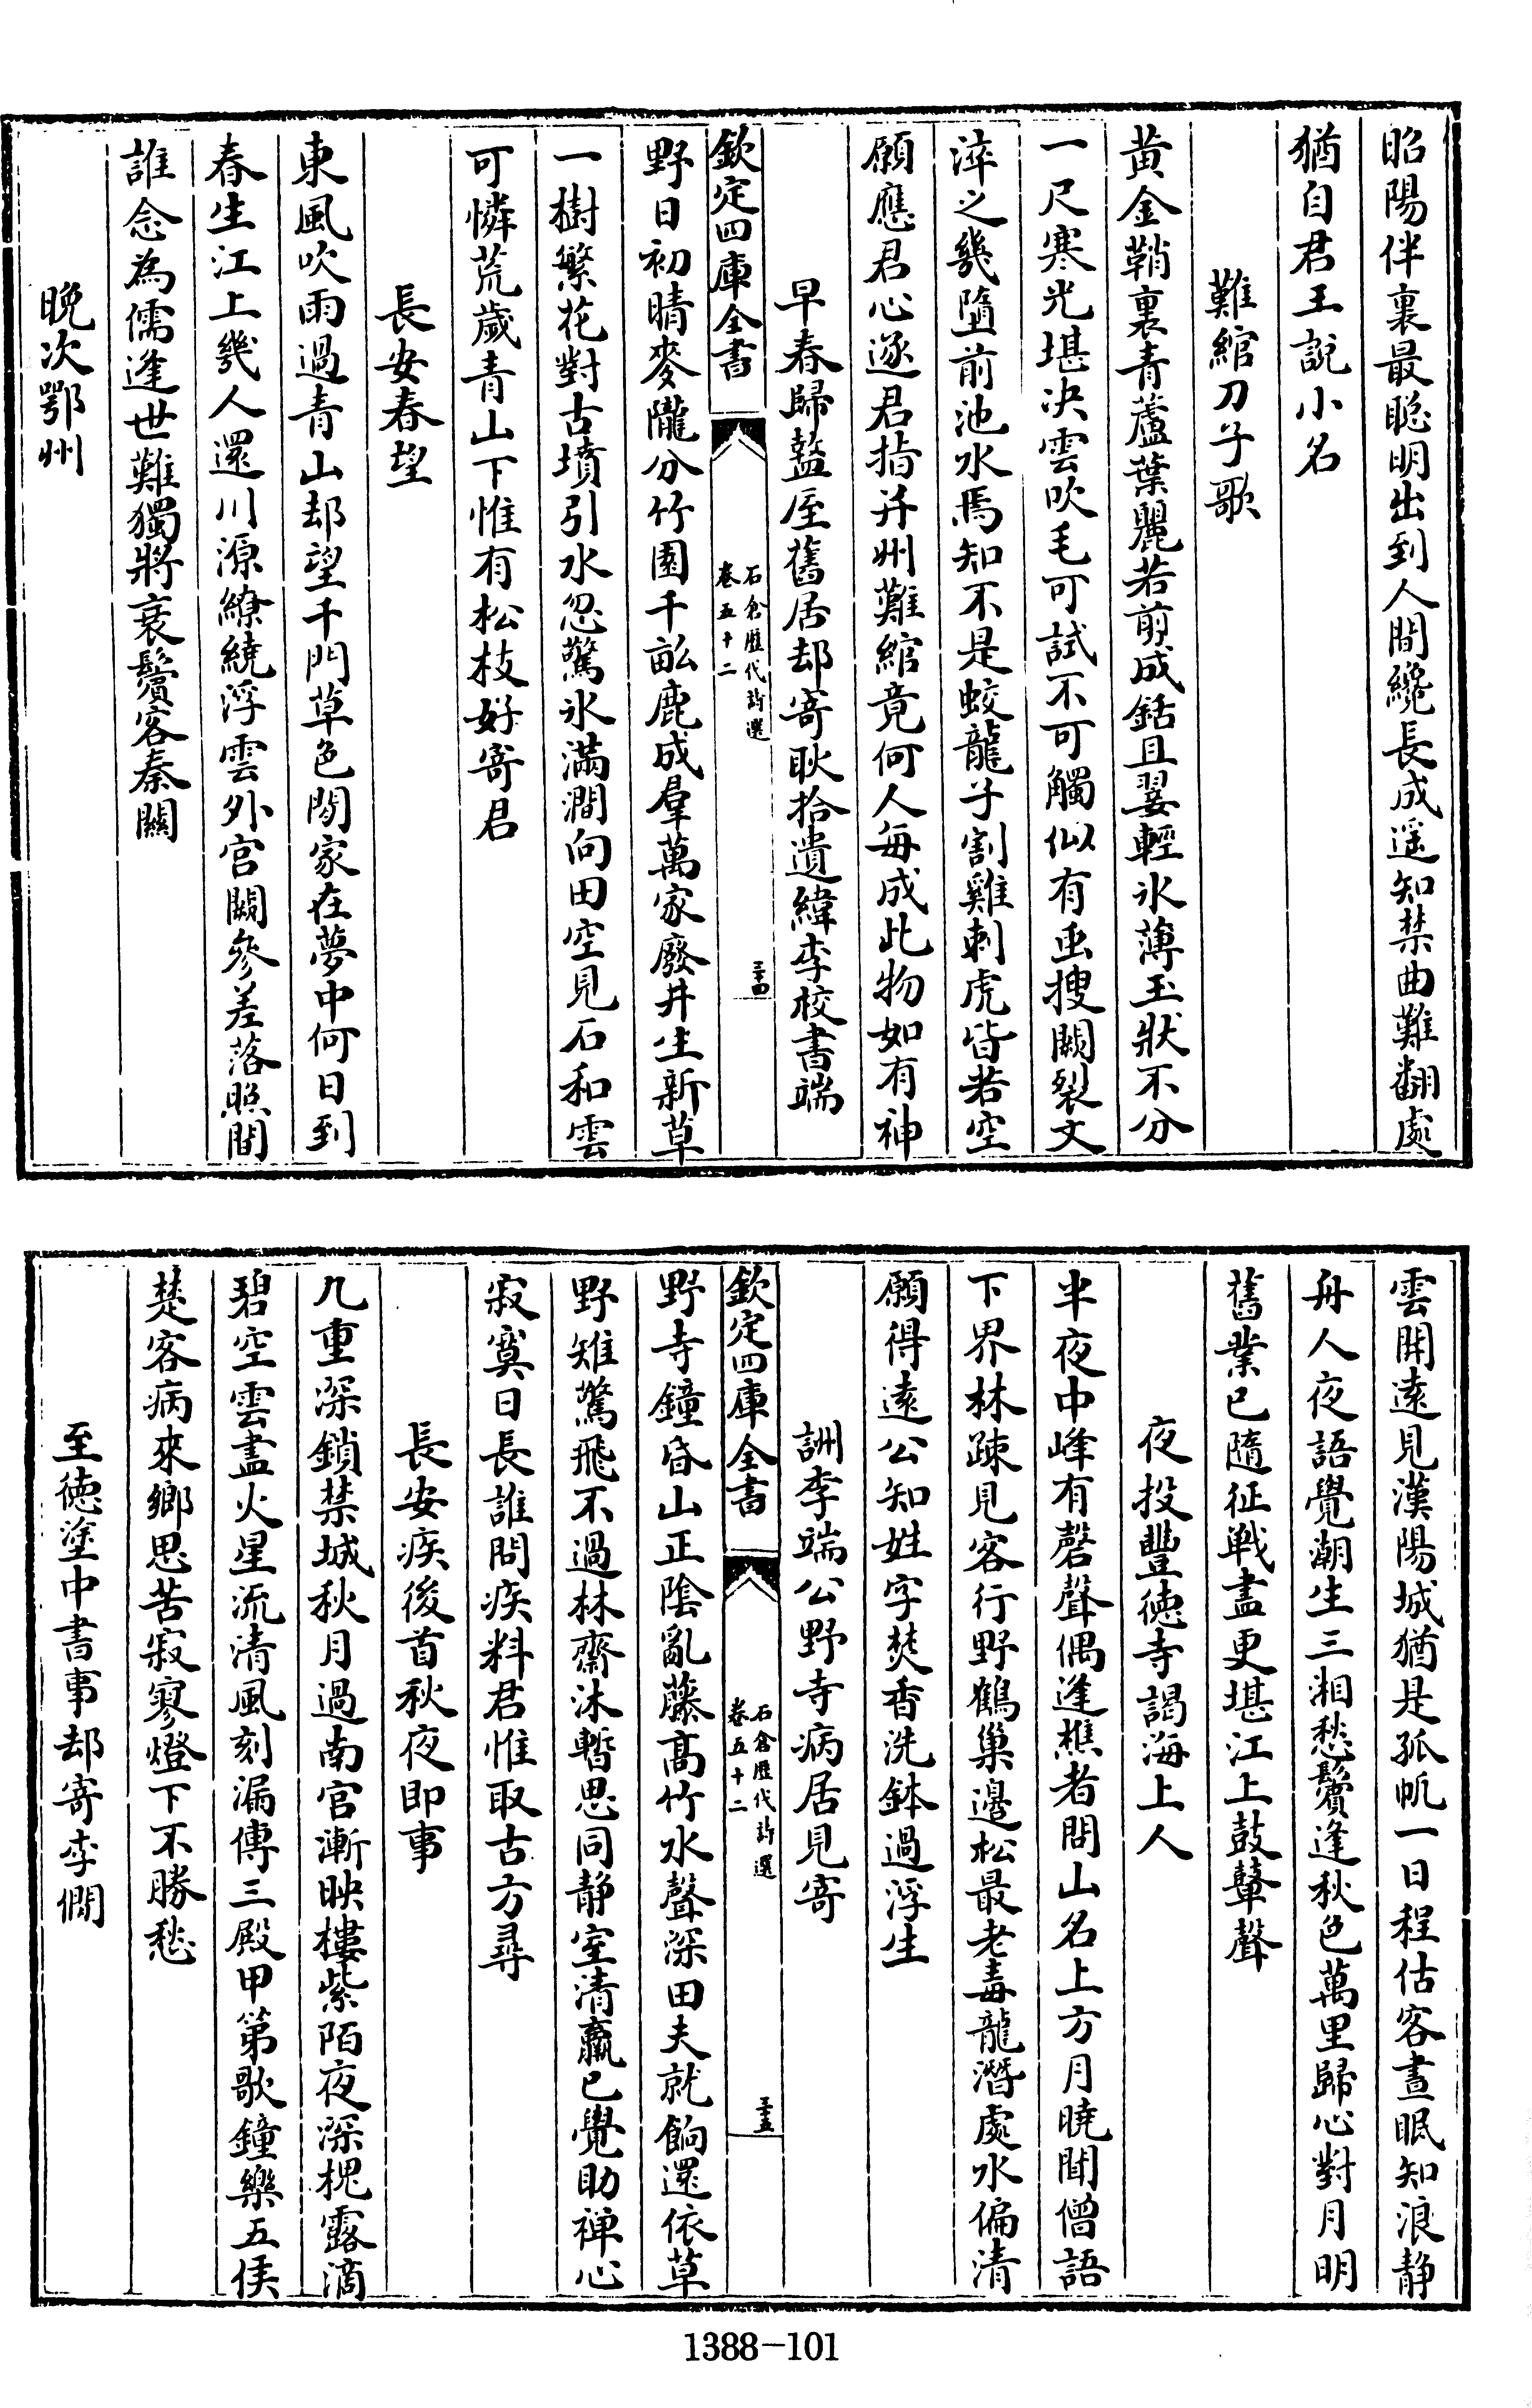 昭陽伴裏最聰明出到人間纔長成遥知禁曲難翻處
猶自君王說小名
難綰刀子歌
黄金鞘裏青蘆葉麗若剪成銛且翣輕氷薄玉狀不分
一尺寒光堪决雲吹毛可試不可觸似有䖝搜闕裂文
淬之幾墮前池水焉知不是蛟龍子割雞刺虎皆若空
願應君心逐君指并州難綰竟何人每成此物如有神
早春歸盩厔舊居却寄耿拾遺緯李校書端
欽定四庫全書
石倉歷代詩選
卷五十二
三十四
野日初晴麥隴分竹園千畝鹿成羣萬家廢井生新草
一樹繁花對古墳引水忽驚氷滿澗向田空見石和雲
可憐荒歲青山下惟有松枝好寄君
長安春望
東風吹雨過青山却望千門草色閒家在夢中何日到
春生江上幾人還川源繚繞浮雲外宫闕參差落照間
誰念為儒逢世難獨將衰鬢客秦關
晚次鄂州
雲開遠見漢陽城猶是孤帆一日程估客晝眠知浪静
舟人夜語覺潮生三湘愁鬢逢秋色萬里歸心對月明
舊業已隨征戰盡更堪江上鼓鼙聲
夜投豐徳寺謁海上人
半夜中峰有磬聲偶逢樵者問山名上方月曉聞僧語
下界林疎見客行野鶴巢邊松最老毒龍潛處水偏清
願得遠公知姓字焚香洗鉢過浮生
詶李端公野寺病居見寄
欽定四庫全書
石倉歷代詩選
卷五十二
三十五
野寺鐘昏山正陰亂藤髙竹水聲深田夫就餉還依草
野雉驚飛不過林齋沐暫思同静室清羸已覺助禅心
寂寞日長誰問疾料君惟取古方尋
長安疾後首秋夜即事
九重深鎖禁城秋月過南宫漸映樓紫陌夜深槐露滴
碧空雲盡火星流清風刻漏傳三殿甲第歌鐘樂五侯
楚客病來鄉思苦寂寥燈下不勝愁
至徳塗中書事却寄李僩
1388-101